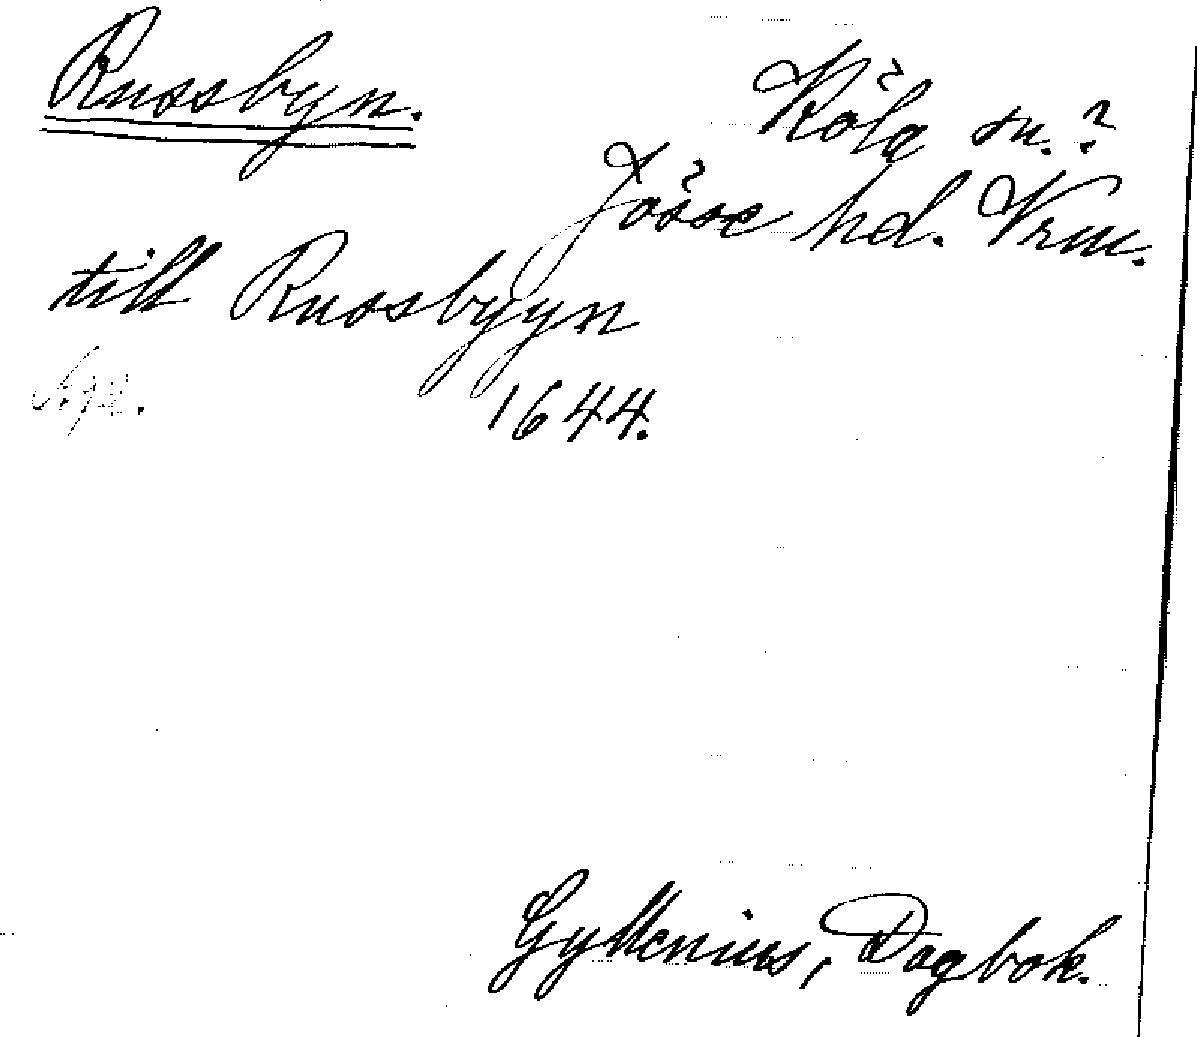 Russbyn.
Köla sn.?
Jösse hd. Vrm.
till Russbyyn
1644.
Gyllenius, Dagbok.